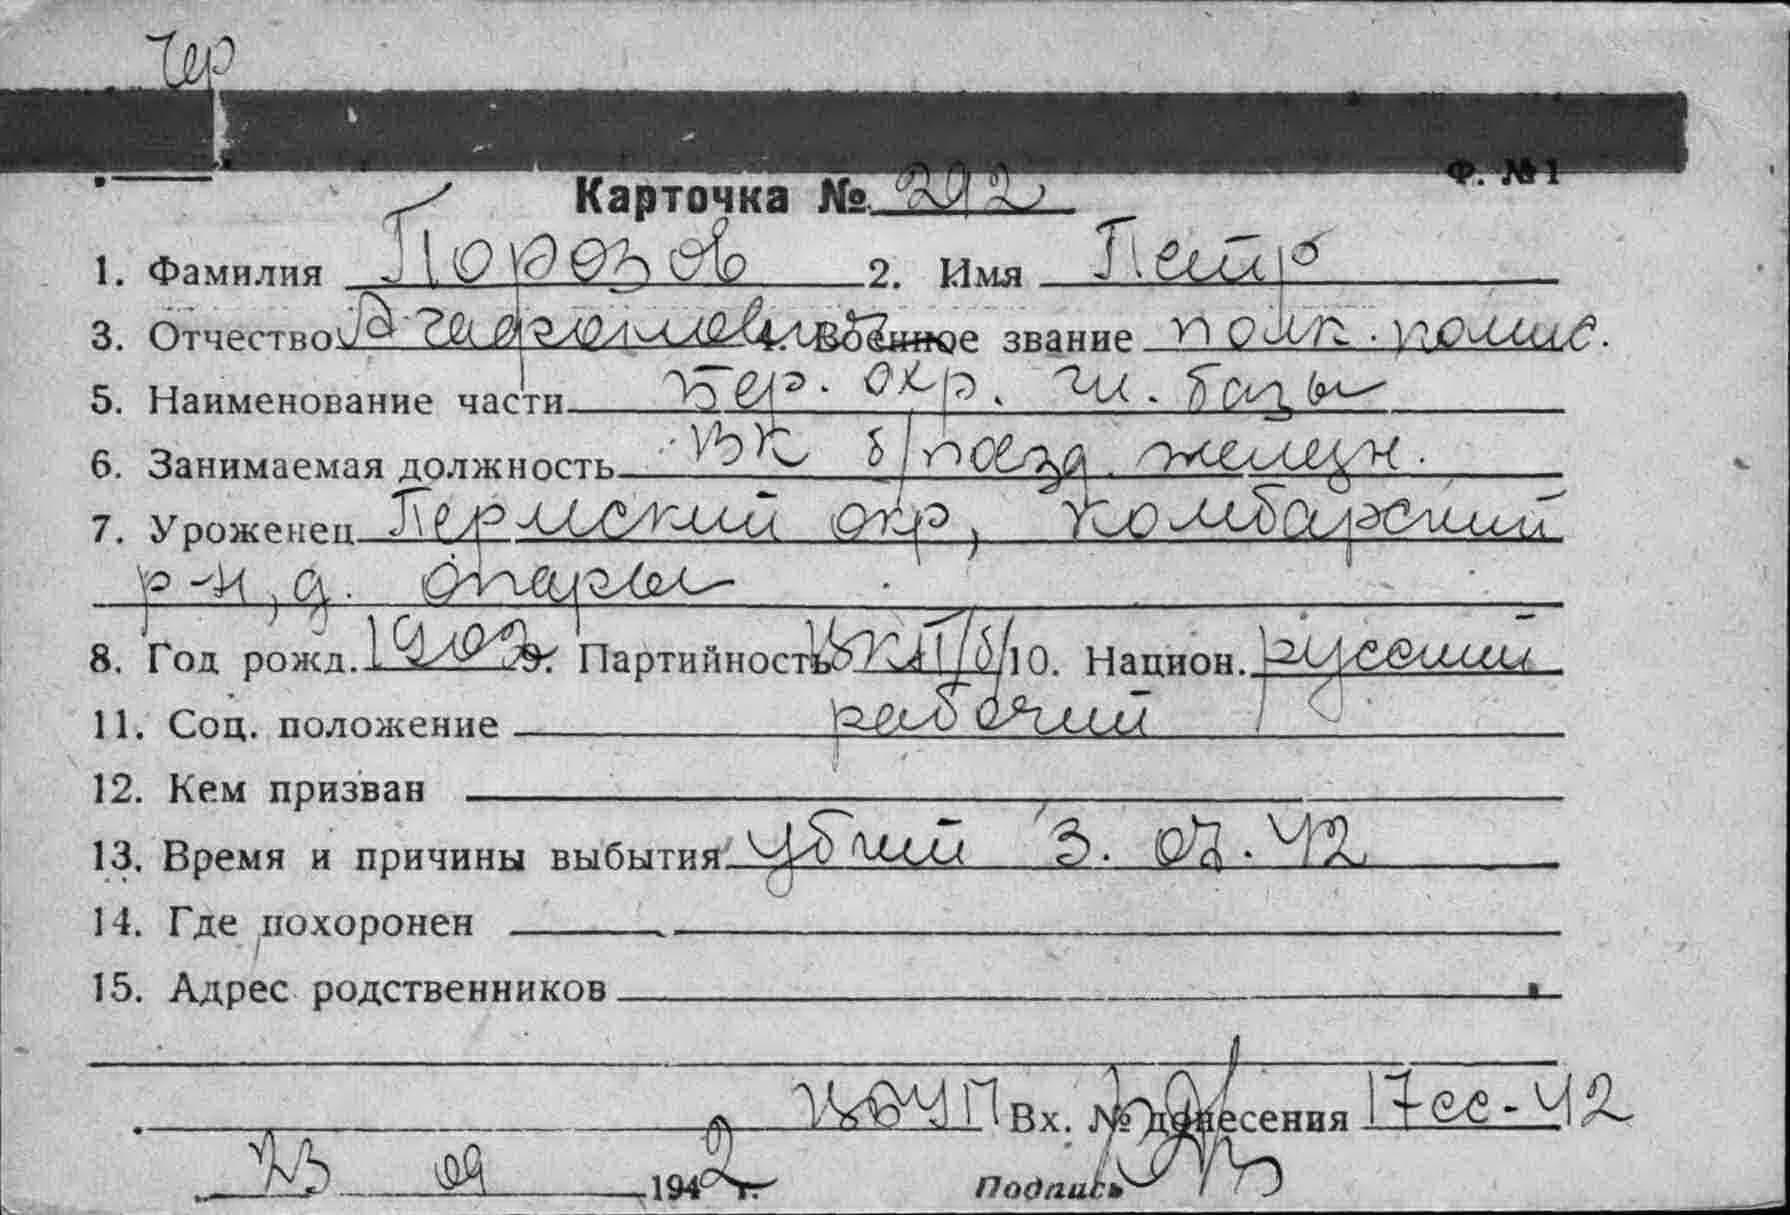 Чер
Ф. №1
Карточка № 292
1. Фамилия Порозов 2. Имя Петр
3. Отчество Агафонович 4. Военное звание полк. комис.
5. Наименование части Бер. охр. гл. базы
6. Занимаемая должность ВК б/поезд железн.
7. Уроженец Пермский окр, Комбарский
р-н, д. Опары
8. Год рожд. 1902 9. Партийность ВКП/б/ 10. Национ. русский
11. Соц. положение рабочий
12. Кем призван
13. Время и причины выбытия убит 3. 07. 42
14. Где похоронен
15. Адрес родственников
Вх. № донесения 17сс-42
23 09 1942 г. Подпись